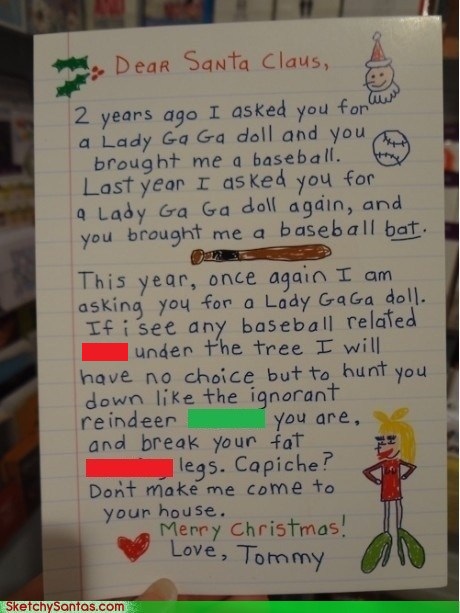 Dear Santa Claus,
2 years ago I asked you for
a Lady Ga Ga doll and you
brought me a baseball.
Last year I asked you for
a Lady Ga Ga doll again, and
you brought me a baseball bat.
This year, once again I am
asking you for a Lady GaGa doll.
If i see any baseball related
under the tree I will
have no choice but to hunt you
down like the ignorant
reindeer you are,
and break your fat
legs. Capiche?
Don't make me come to
your house.
Merry Christmas!
Love, Tommy
SketchySantas.com